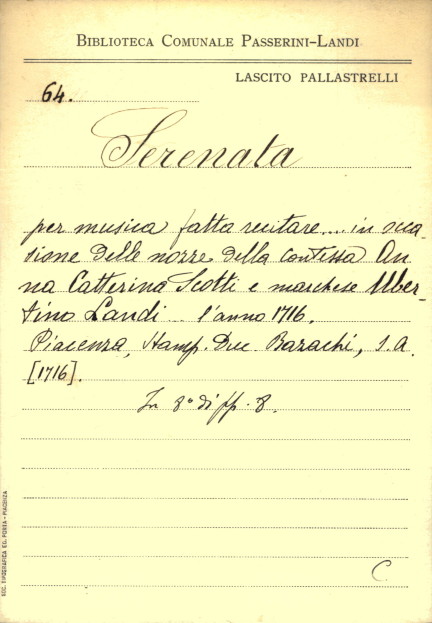 BIBLIOTECA COMUNALE PASSERINI-LANDI
LASCITO PALLASTRELLI
64.
Serenata
per musica fatta recitare.... in occa-
sione delle nozze della contessa An
na Catterina Scotti e marchese Uber-
tino Landi... l'anno 1716.
Piacenza, Stamp. Duc. Bazachi, s. a.
[1716].
In 8° di pp. 8.
C
SOC. TIPOGRAFICA ED. PORTA - PIACENZA